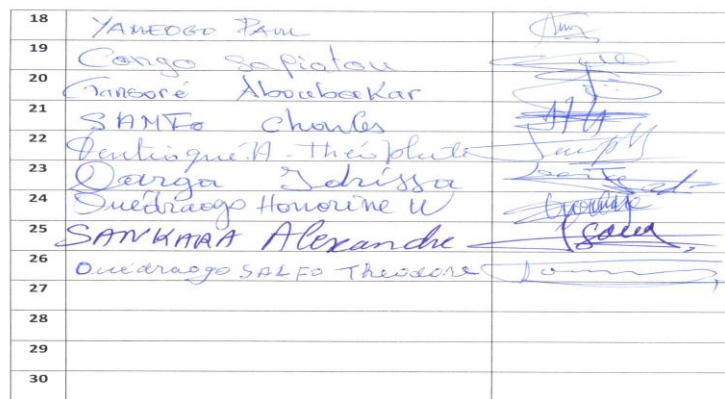 18 YAMEOGO PAUL
19 Congo Safiatou
20 Gansoré Aboubakar
21 SAMTO Charles
22 A. Théophile
23 Darga Idrissa
24 Ouédraogo Honorine W
25 SANKARA Alexandre
26 Ouédraogo SALFO Theodore
27
28
29
30